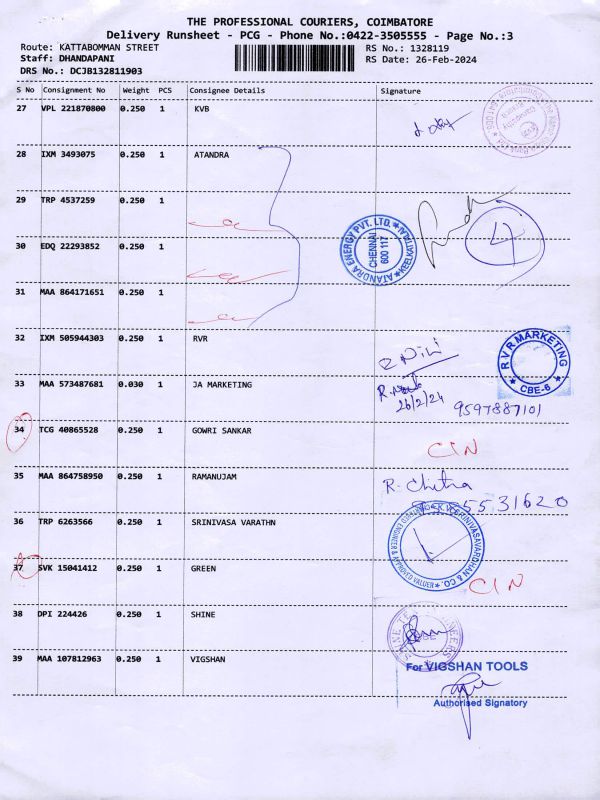 THE PROFESSIONAL COURIERS, COIMBATORE
Delivery Runsheet - PCG - Phone No.:0422-3505555 - Page No.:3
Route: KATTABOMMAN STREET RS No.: 1328119
Staff: DHANDAPANI RS Date: 26-Feb-2024
DRS No.: DCJB132811903
S No Consignment No Weight PCS Consignee Details Signature
27 VPL 221870800 0.250 1 KVB
28 IXM 3493075 0.250 1 ATANDRA
29 TRP 4537259 0.250 1
ATANDRA ENERGY PVT. LTD. ★ KEELKATTALAI ★
CHENNAI
600 117
4
30 EDQ 22293852 0.250 1
31 MAA 864171651 0.250 1
32 IXM 505944303 0.250 1 RVR
R V R MARKETING
★ CBE-6 ★
33 MAA 573487681 0.030 1 JA MARKETING
26/2/24 9597887101
34 TCG 40865528 0.250 1 GOWRI SANKAR
CIN
35 MAA 864758950 0.250 1 RAMANUJAM
R. Chitra
5531620
36 TRP 6263566 0.250 1 SRINIVASA VARATHN
37 SVK 15041412 0.250 1 GREEN
CIN
38 DPI 224426 0.250 1 SHINE
39 MAA 107812963 0.250 1 VIGSHAN
For VIGSHAN TOOLS
Authorised Signatory